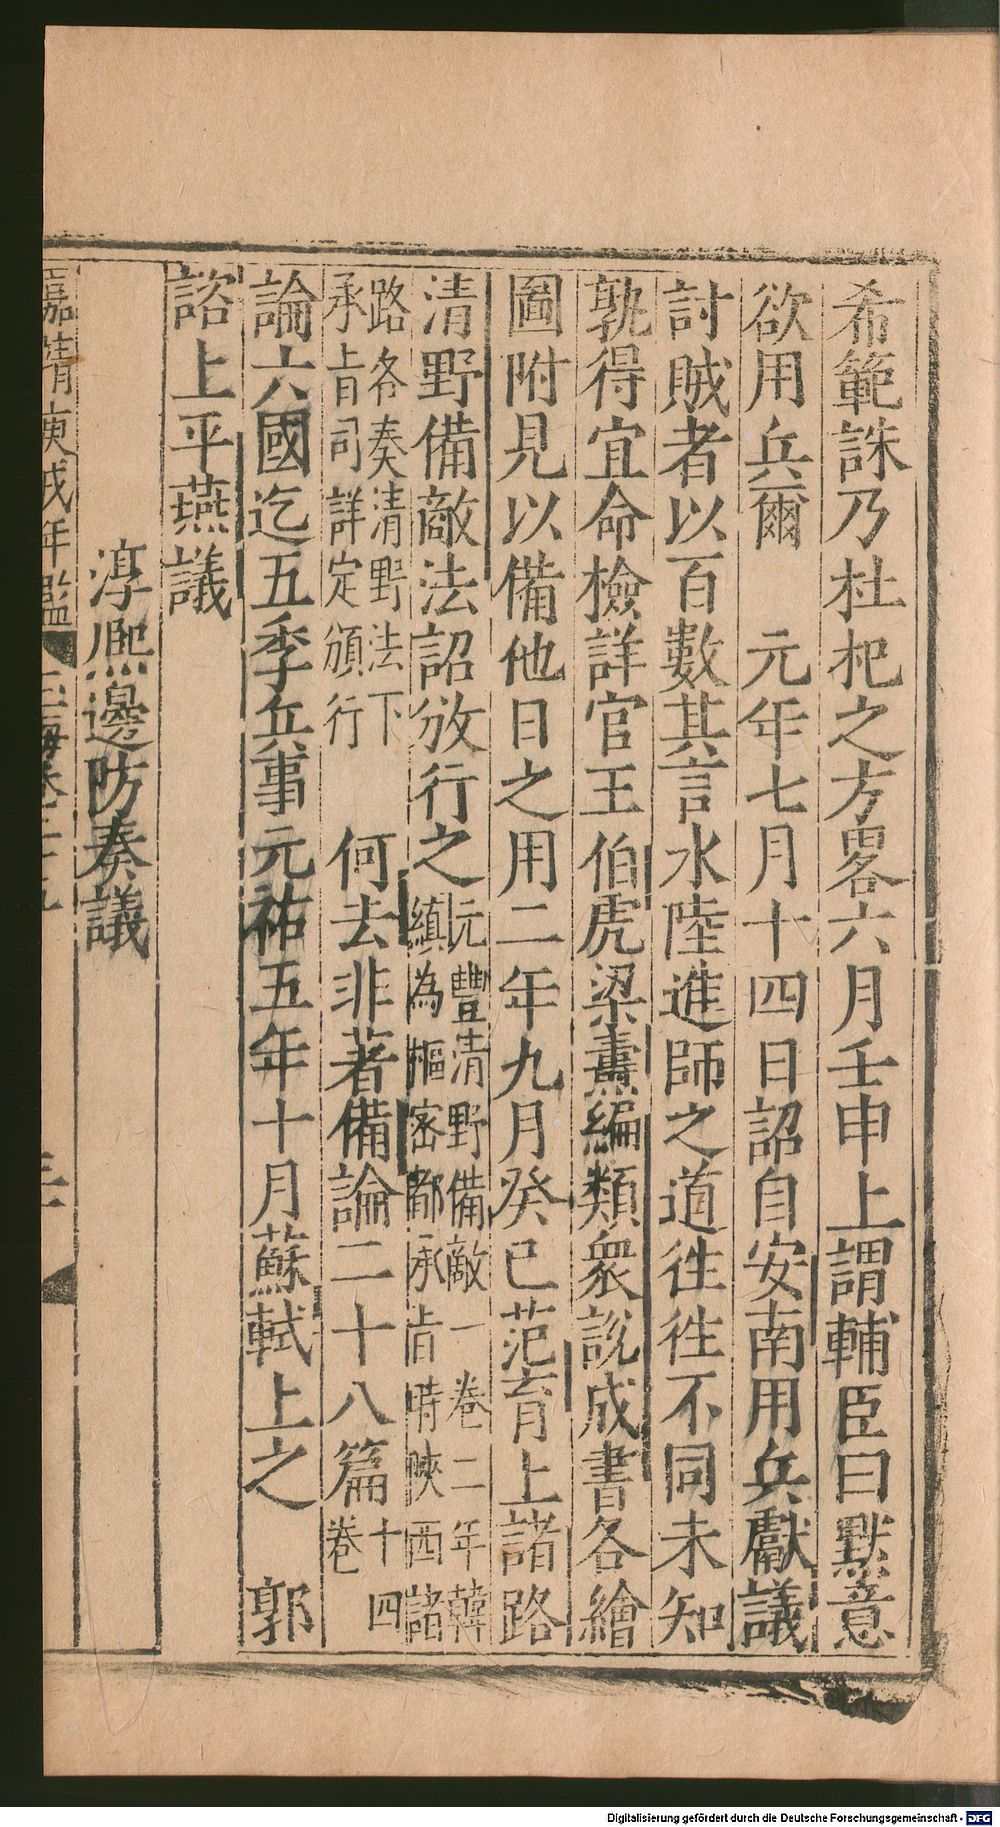 希範誅乃杜杷之方畧六月壬申上謂輔臣曰黙意
欲用兵爾　元年七月十四日詔自安南用兵獻議
討賊者以百數其言水陸進師之道徃徃不同未知
孰得宜命檢詳官王伯虎梁燾編類衆說成書各繪
圖附見以備他日之用二年九月癸巳范育上諸路
清野備敵法詔放行之元豐清野備敵一卷二年韓
縝為樞密都承旨時陜西諸
路各奏清野法下
承旨司詳定頒行　何去非著備論二十八篇十四
卷
論六國迄五季兵事元祐五年十月蘇軾上之　郭
諮上平燕議
淳熈邊防奏議
嘉靖庚戌年
Digitalisierung gefördert durch die Deutsche Forschungsgemeinschaft - DFG